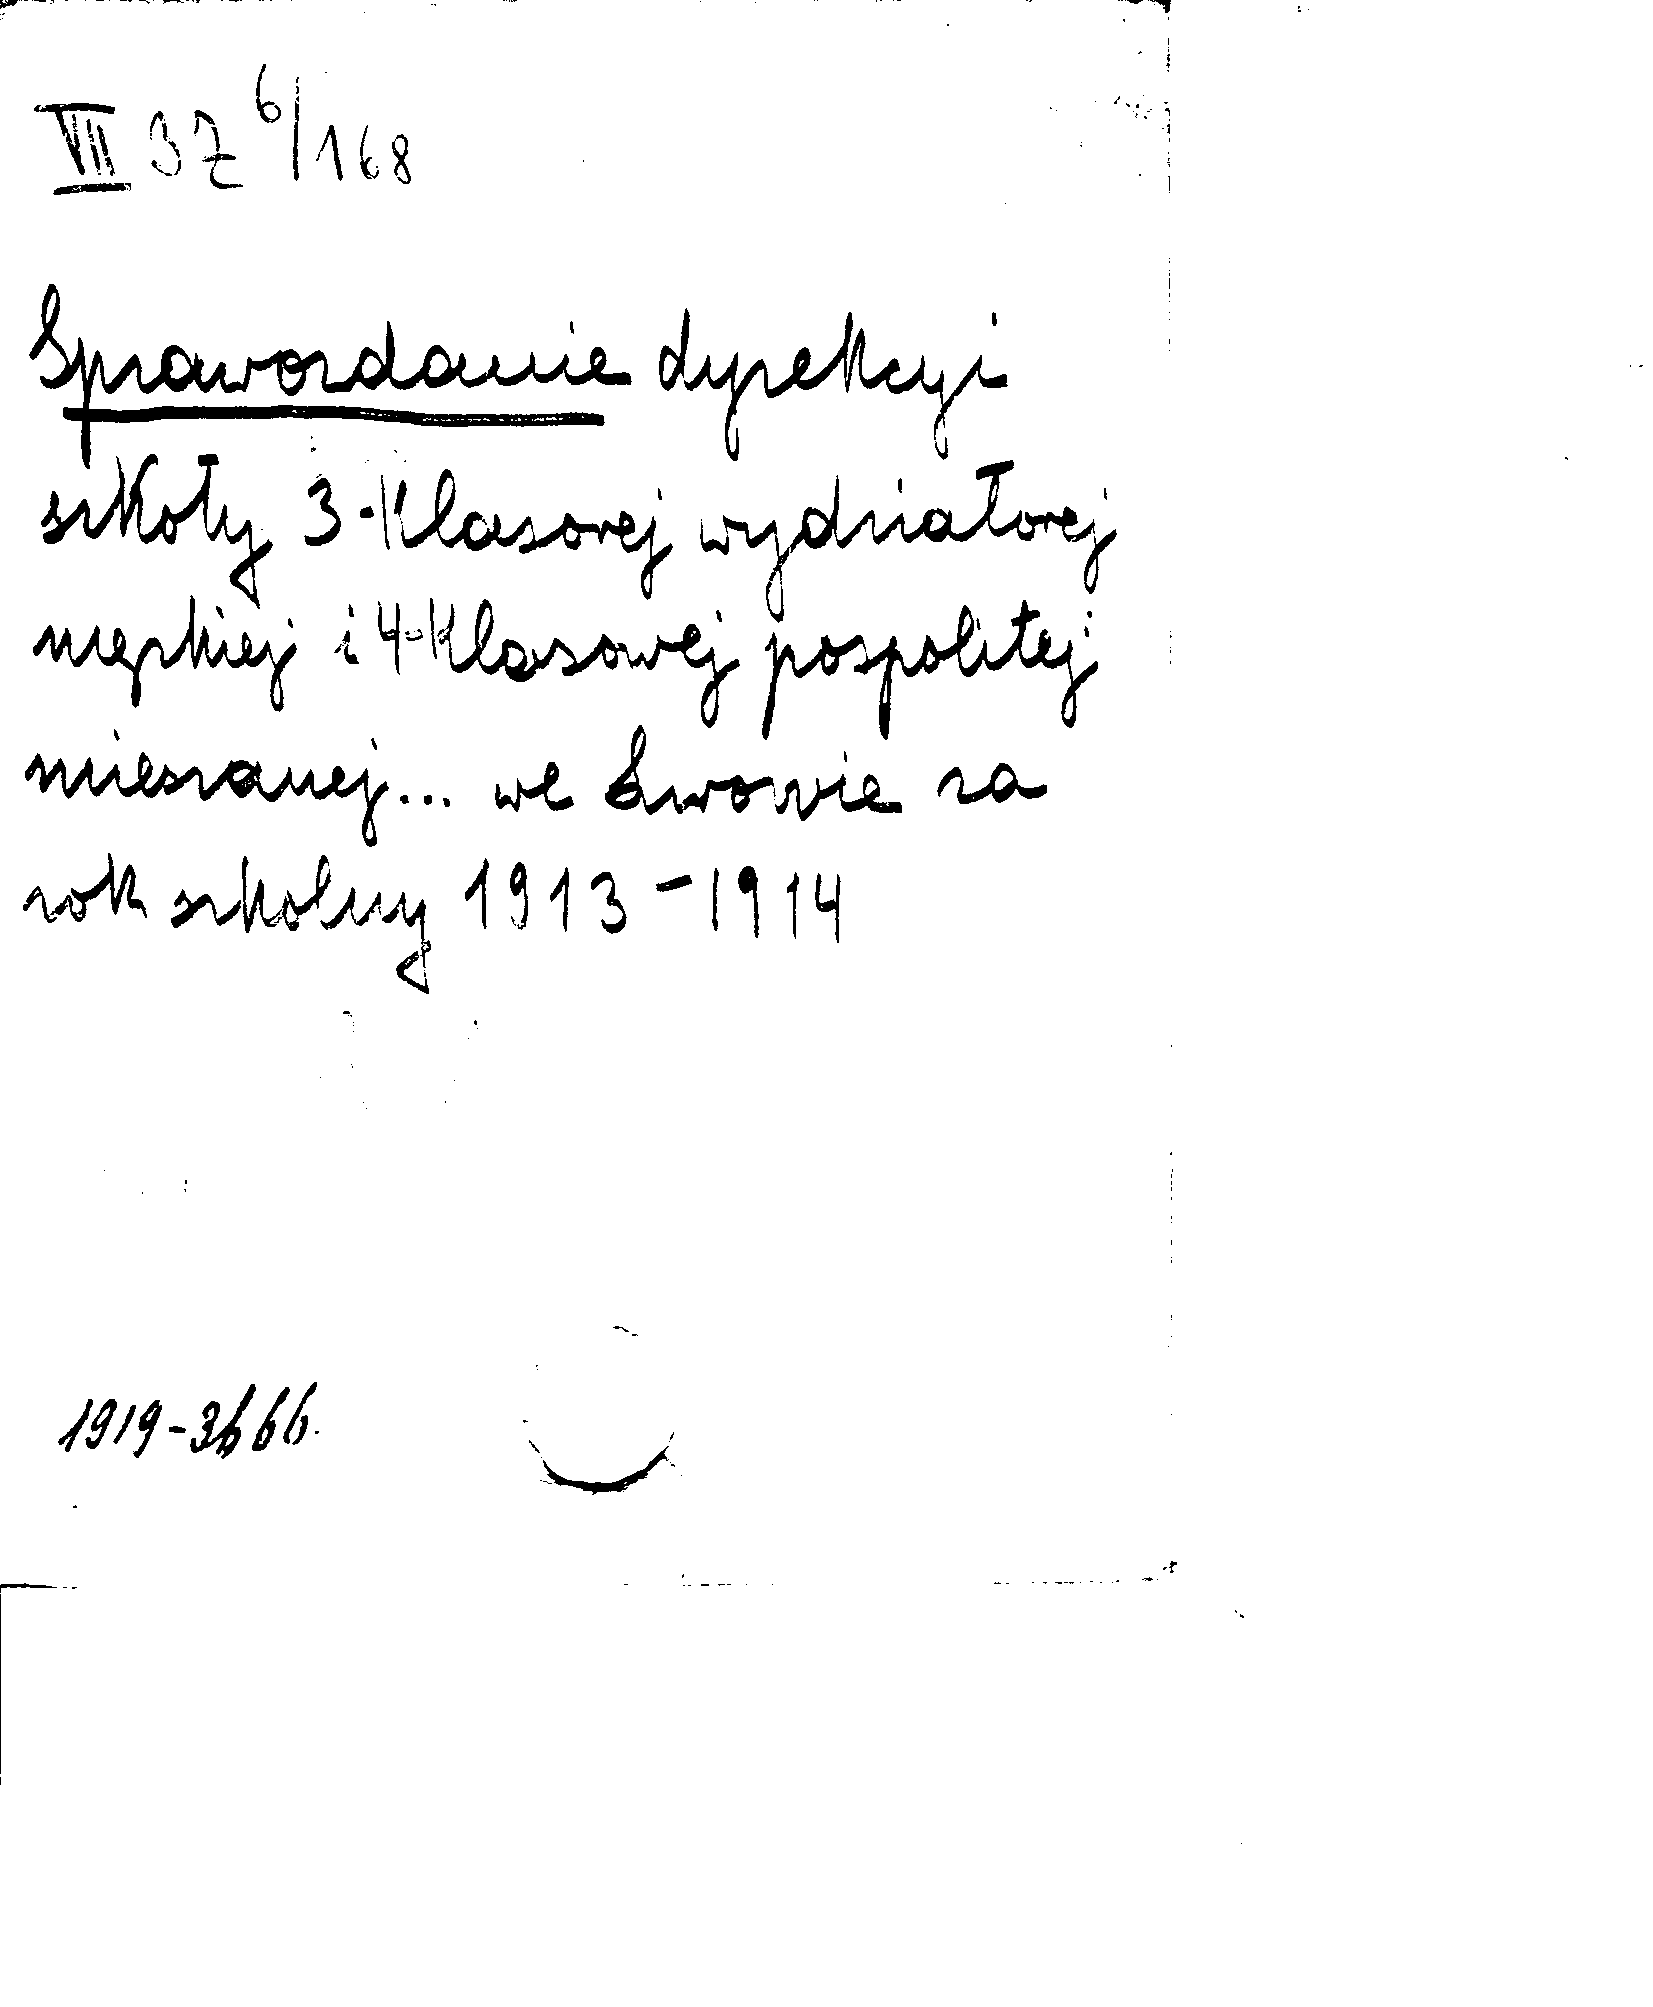 VII 37 6/168
Sprawozdanie dyrekcyi
szkoły 3-klasowej wydziałowej
męzkiej i 4-klasowej pospolitej
mieszanej... we Lwowie za
rok szkolny 1913-1914
1919-3666.